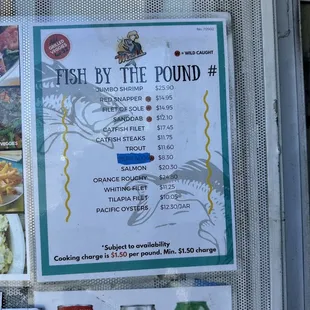 GRILLED
VEGGIES
= WILD CAUGHT
FISH BY THE POUND #
JUMBO SHRIMP $25.90
RED SNAPPER $14.95
FILET OF SOLE $14.95
SANDDAB $12.10
CATFISH FILET $17.45
CATFISH STEAKS $11.75
TROUT $11.60
$8.30
SALMON $20.30
ORANGE ROUGHY $24.50
WHITING FILET $11.25
TILAPIA FILET $10.05
PACIFIC OYSTERS $12.30/JAR
*Subject to availability
Cooking charge is $1.50 per pound. Min. $1.50 charge